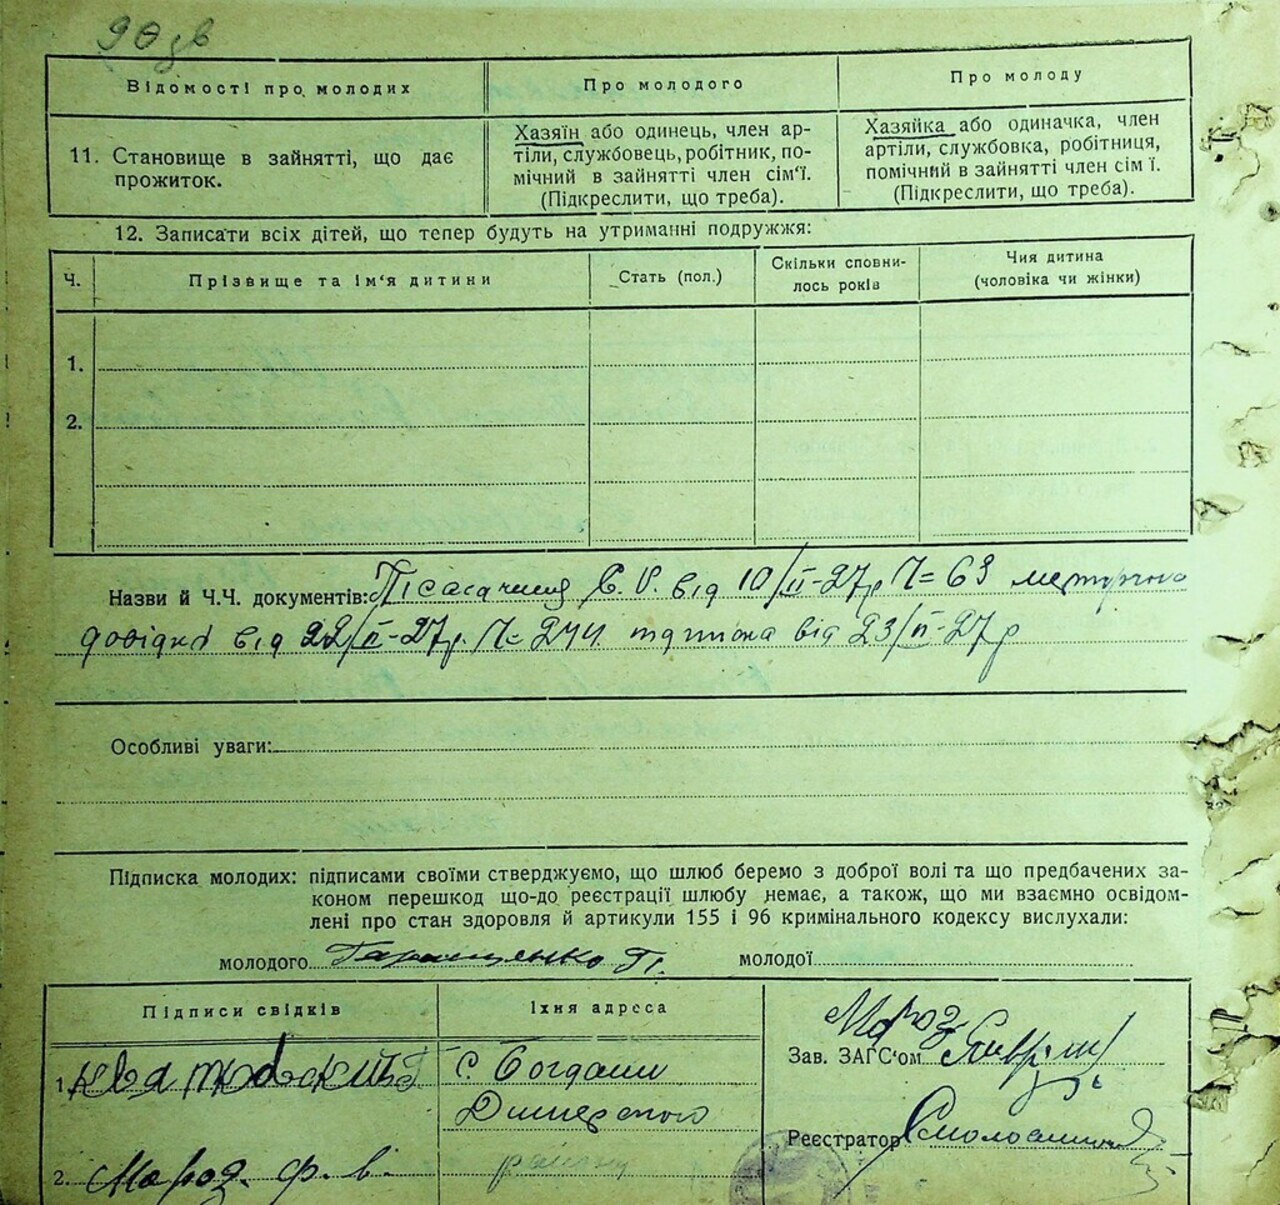 Відомості про молодих
Про молодого
Про молоду
11. Становище в зайнятті, що дає
прожиток.
Хазяїн або одинець, член ар-
тіли, службовець, робітник, по-
мічний в зайнятті член сім'ї.
(Підкреслити, що треба).
Хазяйка або одиначка, член
артіли, службовка, робітниця,
помічний в зайнятті член сім ї.
(Підкреслити, що треба).
12. Записати всіх дітей, що тепер будуть на утриманні подружжя:
Ч.
Прізвище та ім'я дитини
Стать (пол.)
Скільки сповни-
лось років
Чия дитина
(чоловіка чи жінки)
1.
2.
Назви й Ч.Ч. документів: від 10/II-27р Ч= 63
довідка від 22/II-27р. Ч= 244 від 23/II-27р
Особливі уваги:
Підписка молодих: підписами своїми стверджуємо, що шлюб беремо з доброї волі та що предбачених за-
коном перешкод що-до реєстрації шлюбу немає, а також, що ми взаємно освідом-
лені про стан здоровля й артикули 155 і 96 кримінального кодексу вислухали:
молодого Гаращенко П.
молодої
Підписи свідків
Їхня адреса
1. Квятковский
с. Богдани
Димерского
району
2. Мороз. ф. в.
Мороз
Зав. ЗАГС'ом
Реєстратор